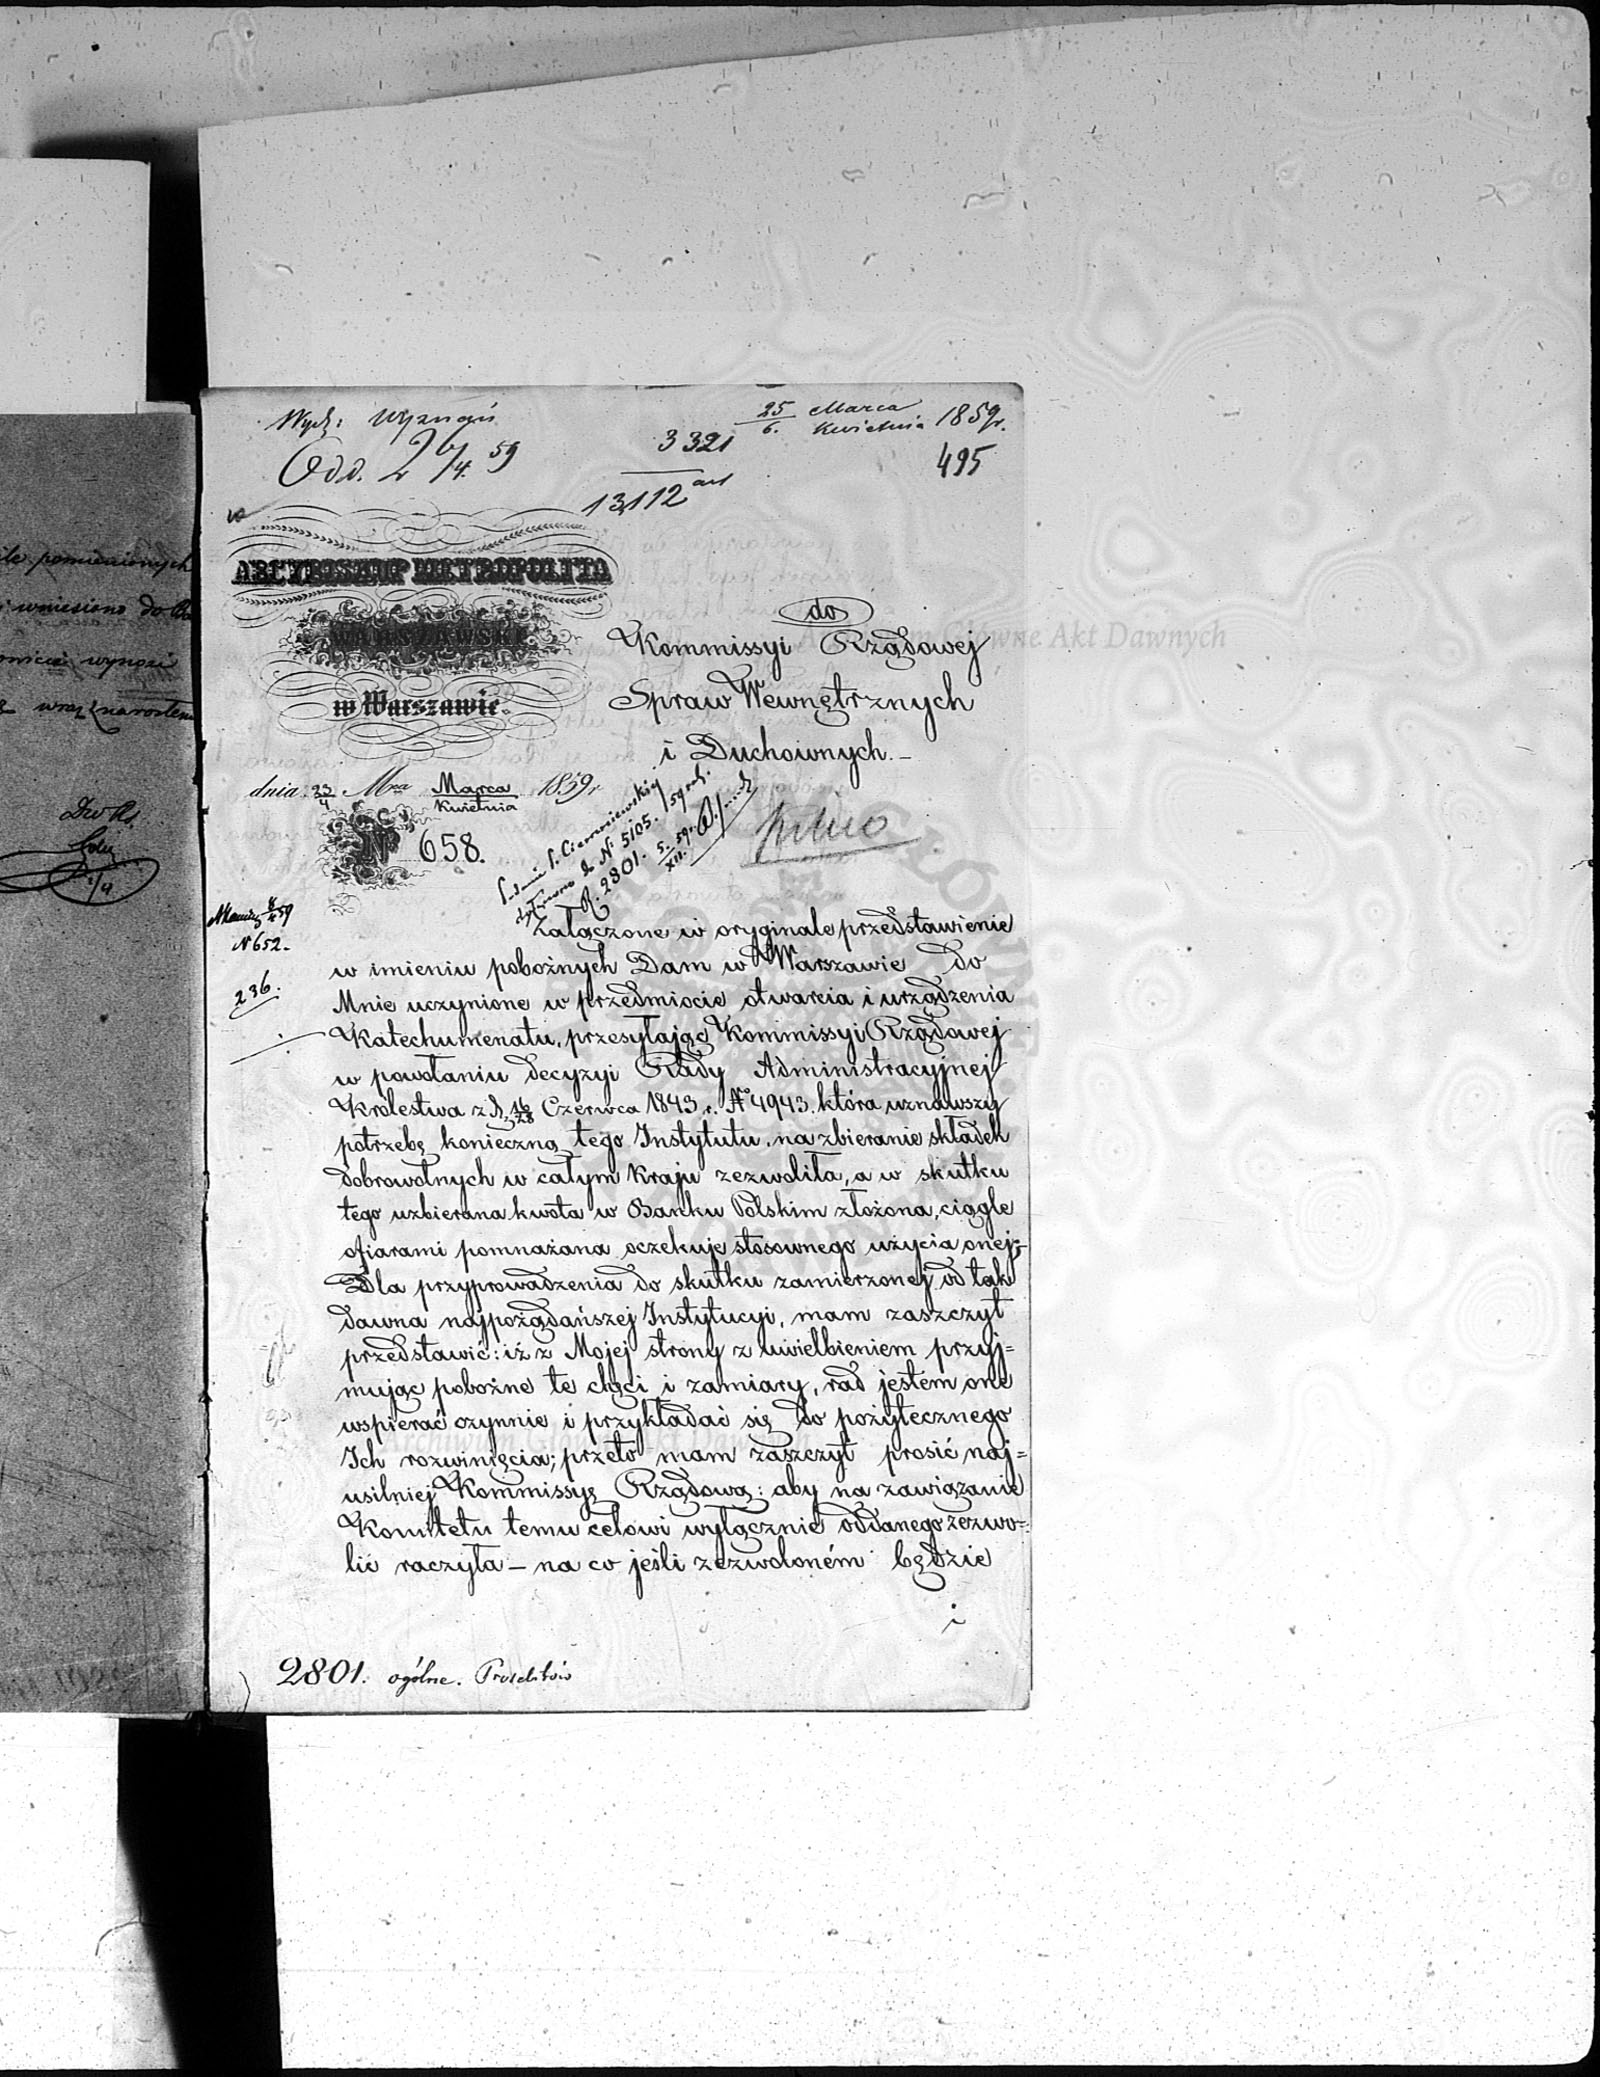 Wydz: Wyznań
25/6. Marca/Kwietnia 1859r.
3321
495
Odd. 2 6/4. 59
13,112
ARCYBISKUP METROPOLITA
WARSZAWSKI
w Warszawie.
do
Kommissyi Rządowej
Spraw Wewnętrznych
i Duchownych.–
dnia 23/4 Mca Marca/Kwietnia 1859r
No 658.
do No 5105.
R. 2801. 5/XII. 59r.
Pilno
8/4 59
N 652.
236.
Załączone w oryginale przedstawienie
w imieniu pobożnych Dam w Warszawie do
Mnie uczynione w przedmiocie otwarcia i urządzenia
Katechumenatu, przesyłając Kommissyi Rządowej
w powołaniu decyzyi Rady Administracyjnej
Królestwa z d. 16/28 Czerwca 1843 r. No 4943. która uznawszy
potrzebę konieczną tego Instytutu, na zbieranie składek
dobrowolnych w całym Kraju zezwoliła, a w skutku
tego uzbierana kwota w Banku Polskim złożona, ciągle
ofiarami pomnażana oczekuje stosownego użycia onej;–
Dla przyprowadzenia do skutku zamierzonej od tak
dawna najpożądańszej Instytucyi, mam zaszczyt
przedstawić: iż z Mojej strony z uwielbieniem przyj=
mując pobożne te chęci i zamiary, rad jestem one
wspierać czynnie i przykładać się do pożytecznego
Ich rozwinięcia; przeto mam zaszczyt prosić naj=
usilniej Kommissyę Rządową: aby na zawiązanie
Komitetu temu celowi wyłącznie oddanego zezwo=
lić raczyła – na co jeśli zezwoloném będzie
i
2801. ogólne. Prozelitów
ile pomienionych
wniesiono do
wynosi
wraz z narosłem
Archiwum Główne Akt Dawnych
Archiwum Główne Akt Dawnych